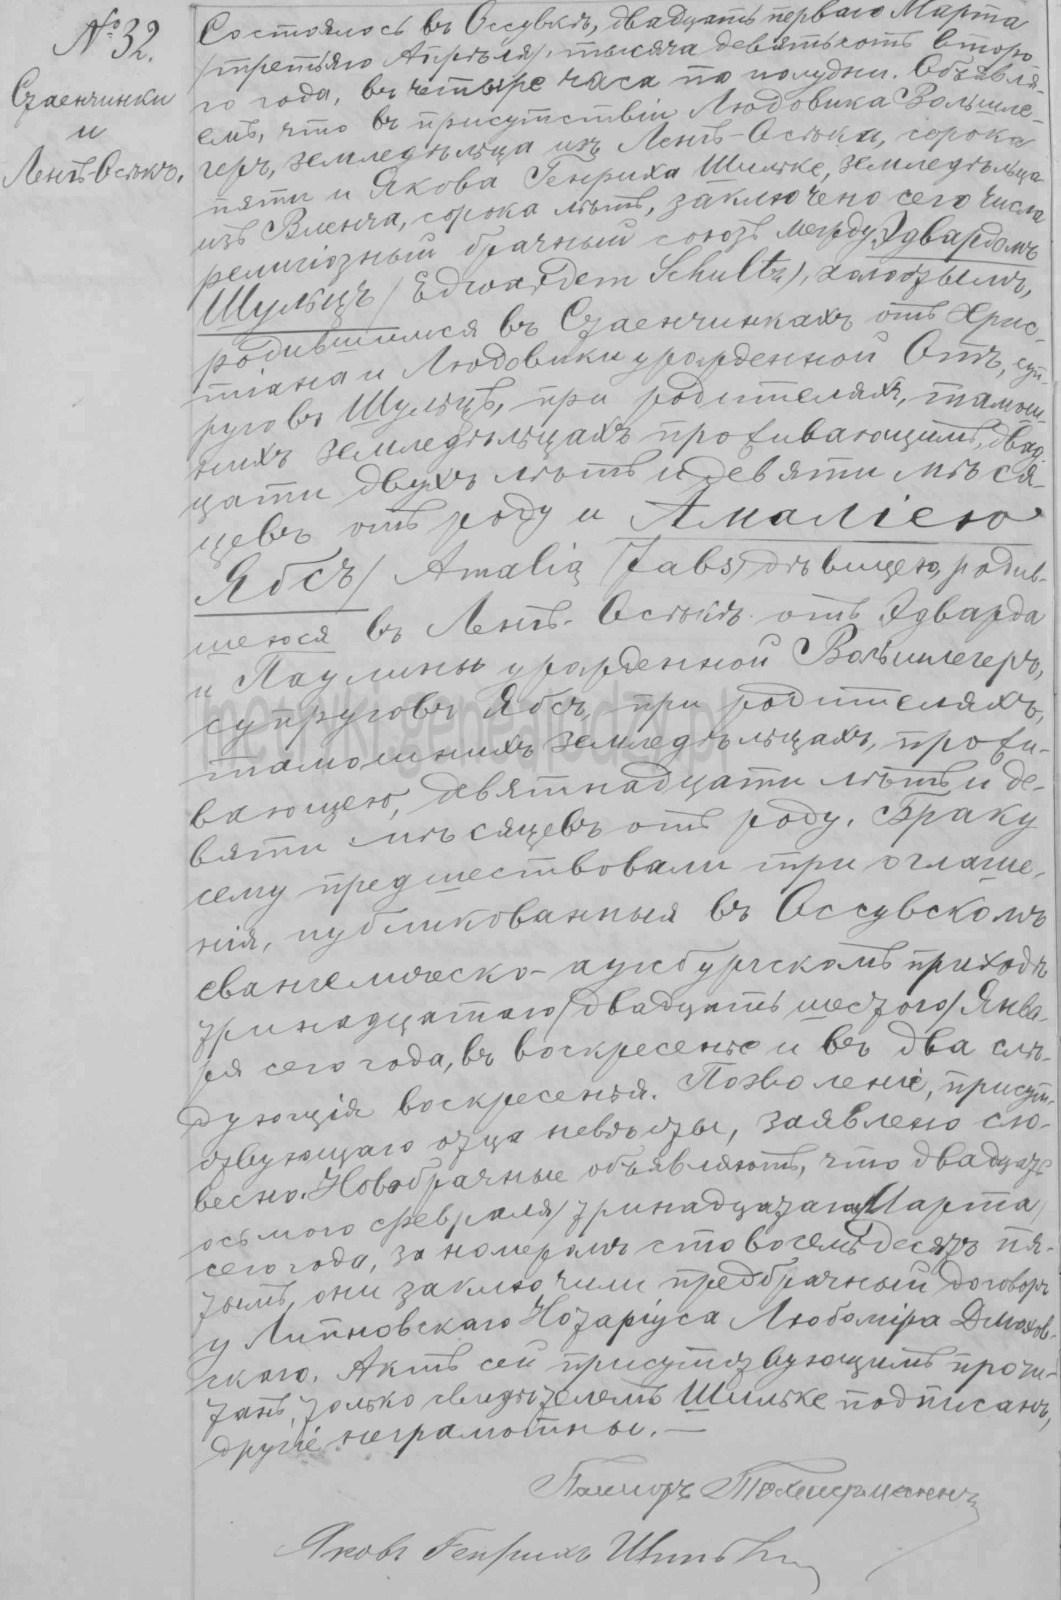 № 32.
Сзаенчинки
и
Лентъ-Осѣкъ.
Состоялось въ Оссувкѣ, двадцать перваго Марта
/третьяго Апрѣля/ тысяча девятьсотъ второ-
го года, въ четыре часа по полудни. Объявля-
емъ, что въ присутствіи Людовика Вольшле-
геръ, земледѣльца изъ Лентъ-Осѣка, сорока
пяти и Якова Генриха Шильке, земледѣльца
изъ Вленча, сорока лѣтъ, заключено сего числа
религіозный брачный союзъ между Эдвардомъ
Шульцъ / Edwardem Schultz /, холостымъ,
родившимся въ Сзаенчинкахъ отъ Хрис-
тіана и Людовики урожденной Оттъ, суп-
руговъ Шульцъ, при родителяхъ, тамош-
нихъ земледѣльцахъ проживающимъ, двад-
цати двухъ лѣтъ и девяти мѣся-
цевъ отъ роду и Амаліею
Ябсъ / Amalia Jabs / дѣвицею, родив-
шеюся въ Лентъ-Осѣкѣ отъ Эдварда
и Паулины урожденной Вольшлегеръ,
супруговъ Ябсъ, при родителяхъ,
тамошнихъ земледѣльцахъ, прожи-
вающею, девятнадцати лѣтъ и де-
вяти мѣсяцевъ отъ роду. Браку
сему предшествовали три оглаше-
нія, публикованныя въ Оссувскомъ
евангелическо-аугсбургскомъ приходѣ
тринадцатаго /двадцать шестого/ Янва-
ря сего года, въ воскресенье и въ два слѣ-
дующія воскресенья. Позволеніе, присут-
ствующаго отца невѣсты, заявлено сло-
весно. Новобрачные объявляютъ, что двадцать
осьмого февраля /тринадцатаго Марта/
сего года, за номеромъ сто восемьдесятъ пя-
тымъ, они заключили предбрачный договоръ
у Липновскаго Нотаріуса Любоміра Дмохов-
скаго. Актъ сей присутствующимъ прочи-
танъ, только свидѣтелемъ Шильке подписанъ,
другіе неграмотны. —
Пасторъ
Яковъ Генрихъ Шильке
metryki.genealodzy.pl